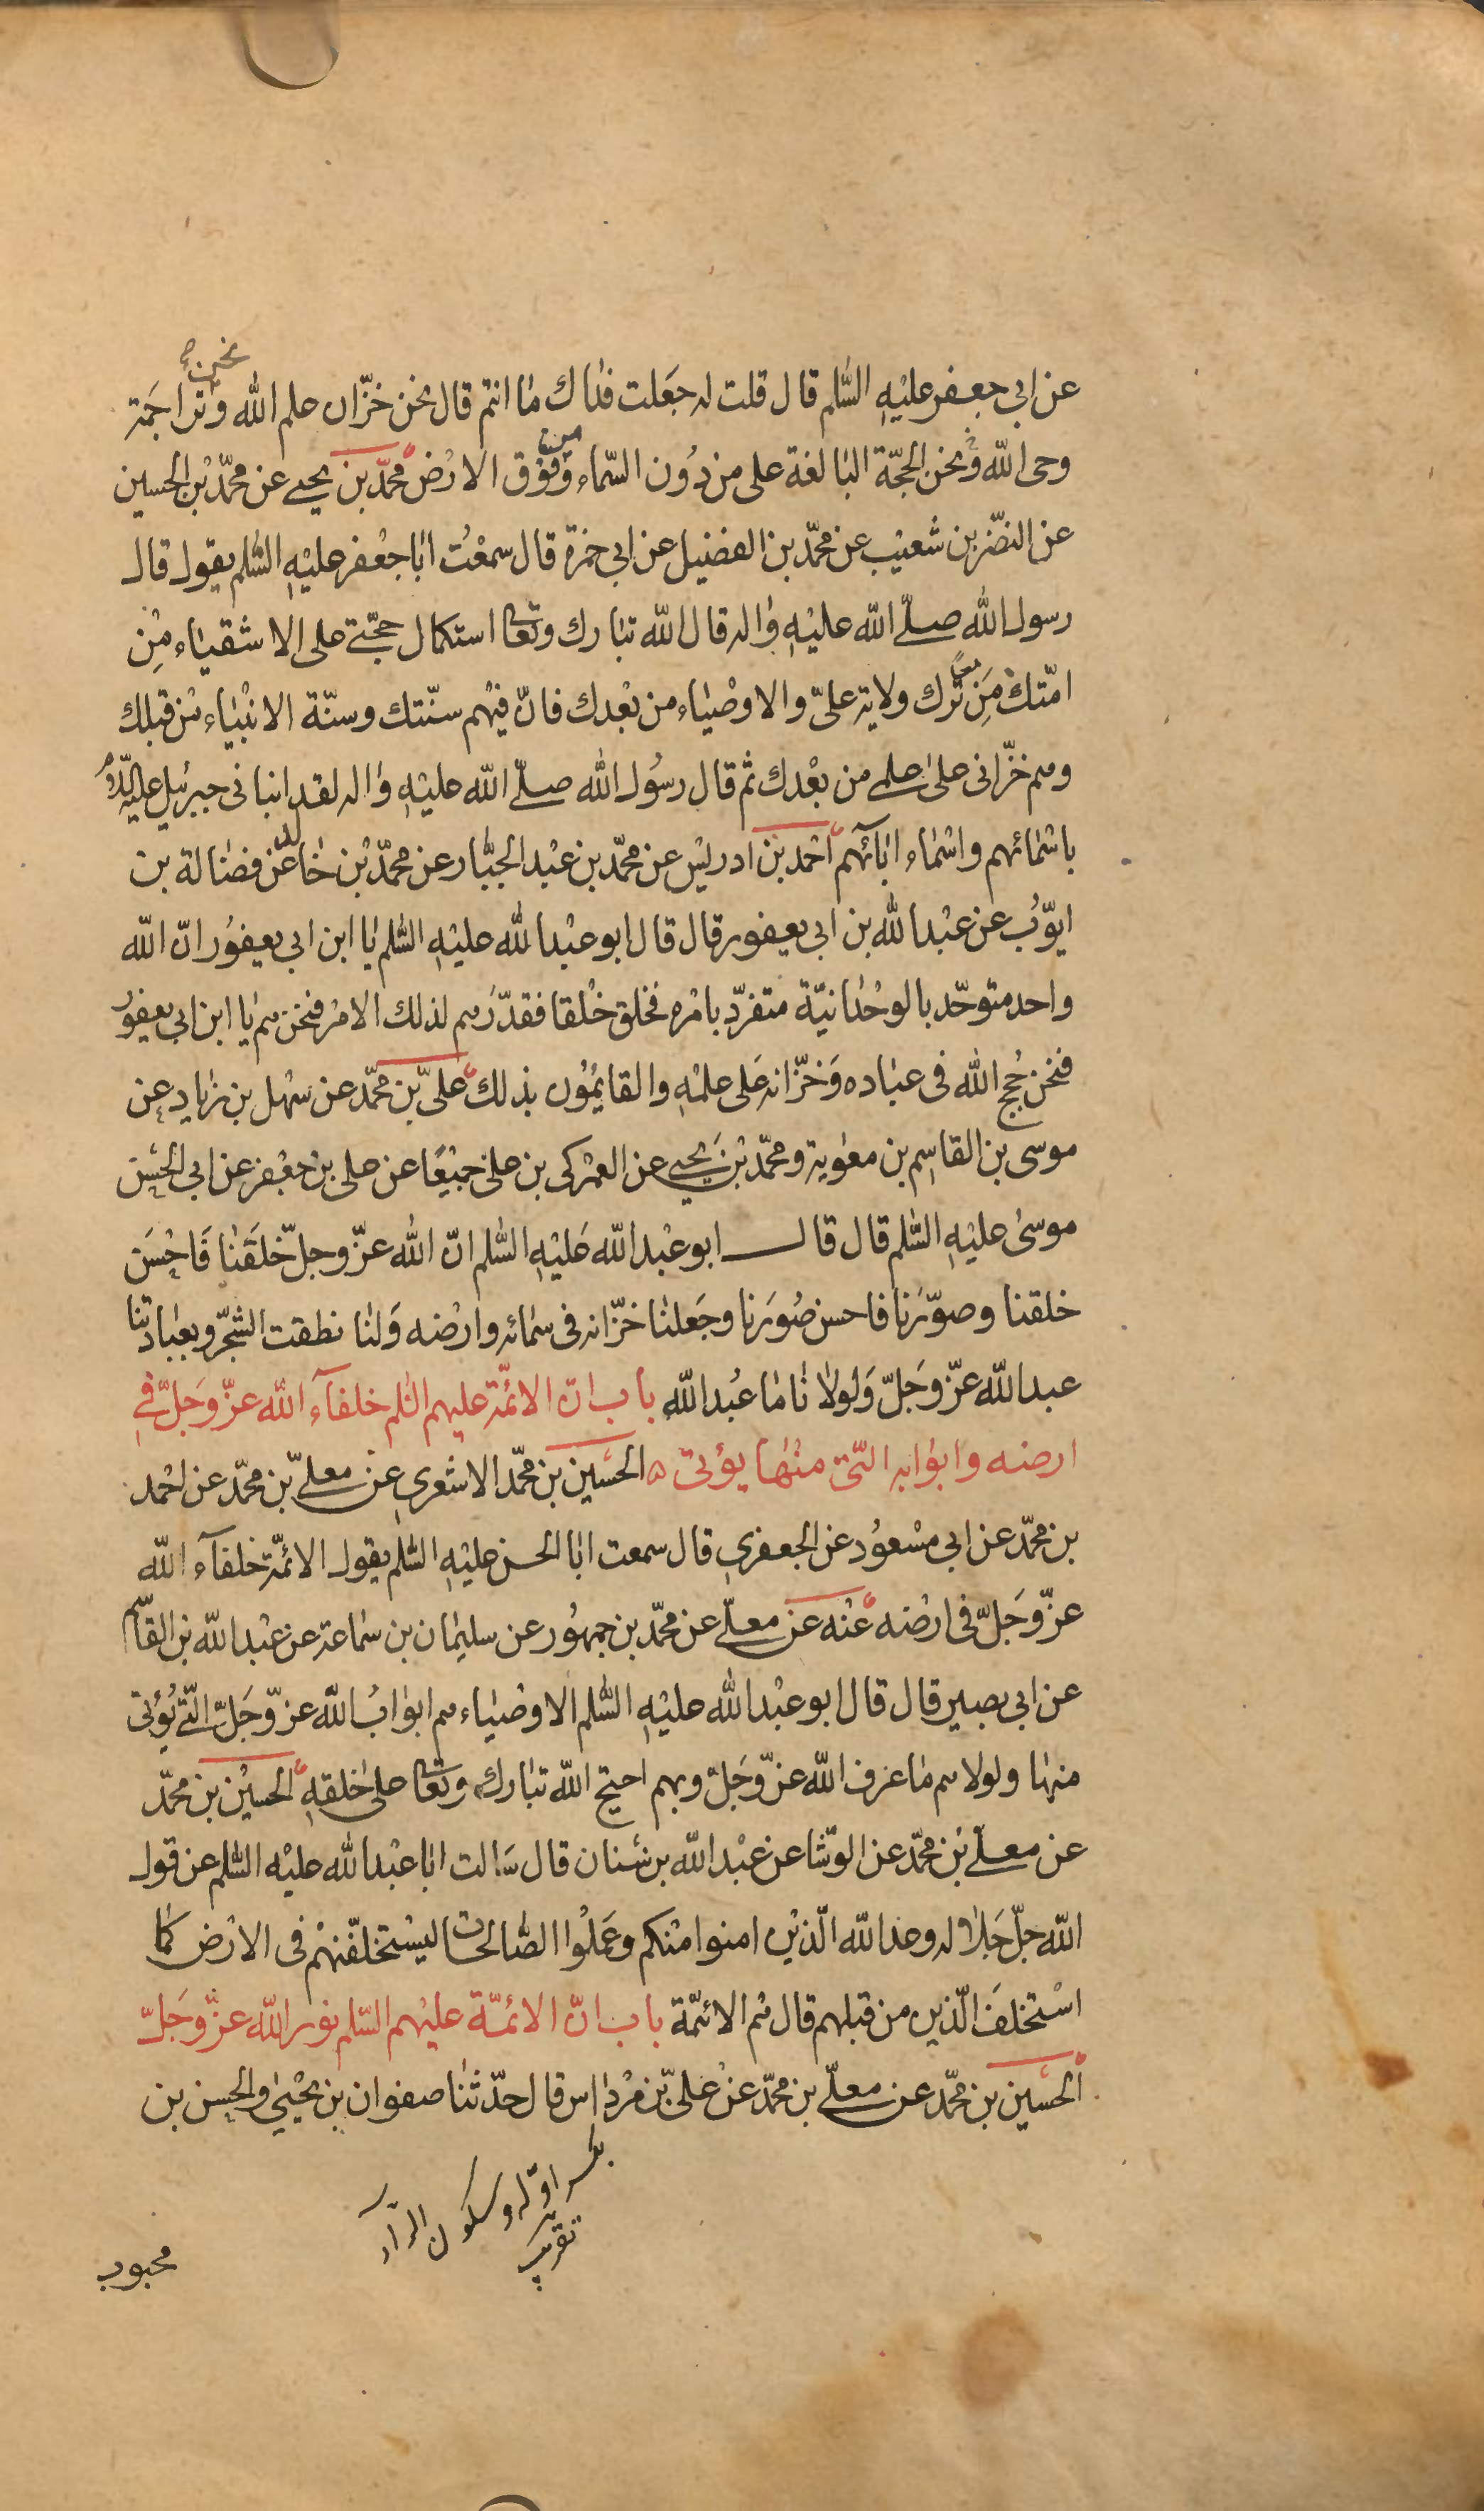 عن ابي جعفر عليه السّلم قال قلت له جعلت فداك ما انتم قال نحن خزّان علم الله و نحن تراجمة
وحى الله و نحن الحجّة البالغة على من دون السّماء و من فوق الارض محمّد بن يحيى عن محمّد بن الحسين
عن النضر بن شعيب عن محمّد بن الفضيل عن ابي حمزة قال سمعت ابا جعفر عليه السّلم يقول قال
رسول الله صلّى الله عليه واله قال الله تبارك وتعالى استكمال حجّتي على الاشقياء من
امّتك من ترك ولاية علىّ والاوصياء من بعدك فانّ فيهم سنّتك وسنّة الانبياء من قبلك
وهم خزّانى على علمى من بعدك ثم قال رسول الله صلّى الله عليه واله لقد انبانى جبرئيل عليه السّلم
باسمائهم واسماء ابآئهم احمد بن ادريس عن محمّد بن عبد الجبّار عن محمّد بن خالد عن فضالة بن
ايّوب عن عبد الله بن ابى يعفور قال قال ابو عبد الله عليه السّلم يا ابن ابى يعفور انّ الله
واحد متوحّد بالوحدانيّة متفرّد بامره فخلق خلقا فقدّرهم لذلك الامر فنحن هم يا ابن ابى يعفور
فنحن حجج الله فى عباده وخزّانه على علمه والقايمون بذلك علىّ بن محمّد عن سهل بن زياد عن
موسى بن القاسم بن معوية ومحمّد بن يحيى عن العمركى بن على جميعا عن على بن جعفر عن ابى الحسن
موسى عليه السّلم قال قال ابو عبد الله عليه السّلم انّ الله عزّ وجلّ خلقنا فاحسن
خلقنا وصوّرنا فاحسن صورنا وجعلنا خزّانه فى سمائه وارضه ولنا نطقت الشّجر وبعبادتنا
عبد الله عزّ وجلّ ولولانا ما عبد الله باب انّ الائمّة عليهم السّلم خلفآء الله عزّ وجلّ فى
ارضه وابوابه الّتى منها يؤتى ه الحسين بن محمّد الاشعرى عن معلّى بن محمّد عن احمد
بن محمّد عن ابى مسعود عن الجعفرى قال سمعت ابا الحسن عليه السّلم يقول الائمّة خلفآء الله
عزّ وجلّ فى ارضه عنه عن معلّى عن محمّد بن جمهور عن سليمان بن سماعة عن عبد الله بن القاسم
عن ابى بصير قال قال ابو عبد الله عليه السّلم الاوصياء هم ابواب الله عزّ وجلّ الّتى يؤتى
منها ولولا هم ما عرف الله عزّ وجلّ وبهم احتجّ الله تبارك وتعالى على خلقه الحسين بن محمّد
عن معلّى بن محمّد عن الوشّا عن عبد الله بن سنان قال سالت ابا عبد الله عليه السّلم عن قول
الله جلّ جلاله وعد الله الّذين امنوا منكم وعملوا الصّالحات ليستخلفنّهم فى الارض كما
استخلف الّذين من قبلهم قال هم الائمّة باب انّ الائمّة عليهم السّلم نور الله عزّ وجلّ
الحسين بن محمّد عن معلّى بن محمّد عن علىّ بن مرداس قال حدّثنا صفوان بن يحيى والحسن بن
بكسر اوّله وسكون الرآء
تقريب
محبوب